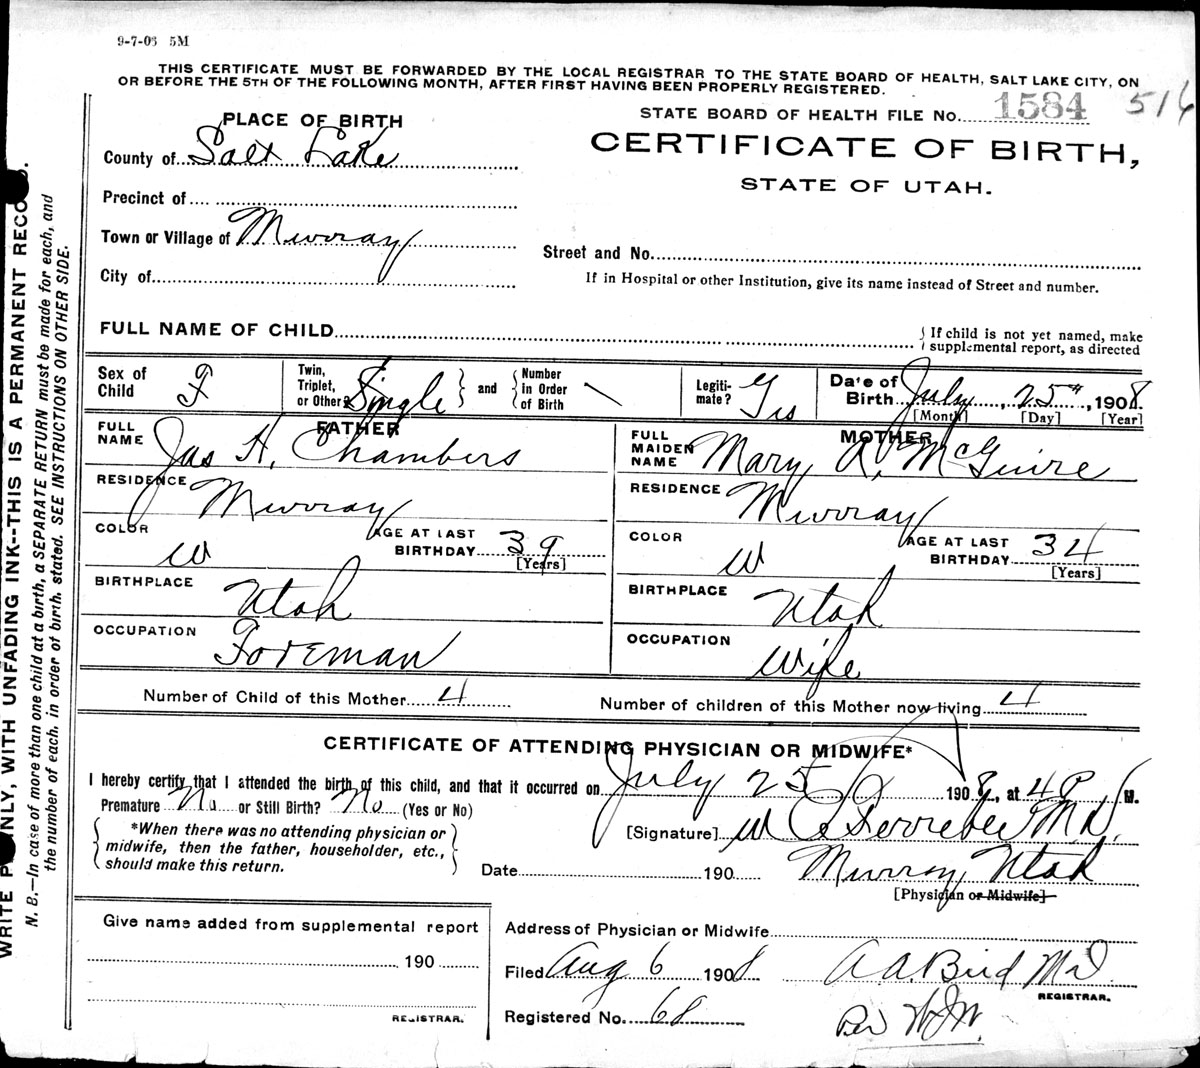 9-7-06 5M
THIS CERTIFICATE MUST BE FORWARDED BY THE LOCAL REGISTRAR TO THE STATE BOARD OF HEALTH, SALT LAKE CITY, ON
OR BEFORE THE 5TH OF THE FOLLOWING MONTH, AFTER FIRST HAVING BEEN PROPERLY REGISTERED.
STATE BOARD OF HEALTH FILE No. 1584 516
PLACE OF BIRTH
CERTIFICATE OF BIRTH,
County of Salt Lake
STATE OF UTAH.
Precinct of
Town or Village of Murray
Street and No.
City of
If in Hospital or other Institution, give its name instead of Street and number.
FULL NAME OF CHILD
{ If child is not yet named, make
supplemental report, as directed
Sex of Child F
Twin, Triplet, or Other? Single } and { Number in Order of Birth
Legiti-mate? Yes
Date of Birth July, 25th, 1908.
[Month] [Day] [Year]
FATHER
FULL NAME Jas H. Chambers
MOTHER
FULL MAIDEN NAME Mary A. McGuire
RESIDENCE Murray
RESIDENCE Murray
COLOR W AGE AT LAST BIRTHDAY 39 [Years]
COLOR W AGE AT LAST BIRTHDAY 34 [Years]
BIRTHPLACE Utah
BIRTHPLACE Utah
OCCUPATION Foreman
OCCUPATION Wife
Number of Child of this Mother 4 Number of children of this Mother now living 4
CERTIFICATE OF ATTENDING PHYSICIAN OR MIDWIFE*
I hereby certify that I attended the birth of this child, and that it occurred on July 25 1908, at 4 P M.
Premature No or Still Birth? No (Yes or No)
*When there was no attending physician or
midwife, then the father, householder, etc.,
should make this return.
[Signature] W M.D.
Date 190 Murray Utah
[Physician or Midwife]
Give name added from supplemental report
190
REGISTRAR.
Address of Physician or Midwife
Filed Aug 6 1908 A. A. Bird MD
REGISTRAR.
Registered No. 68
Per
WRITE PLAINLY, WITH UNFADING INK--THIS IS A PERMANENT RECORD.
N. B.—In case of more than one child at a birth, a SEPARATE RETURN must be made for each, and
the number of each, in order of birth, stated. SEE INSTRUCTIONS ON OTHER SIDE.